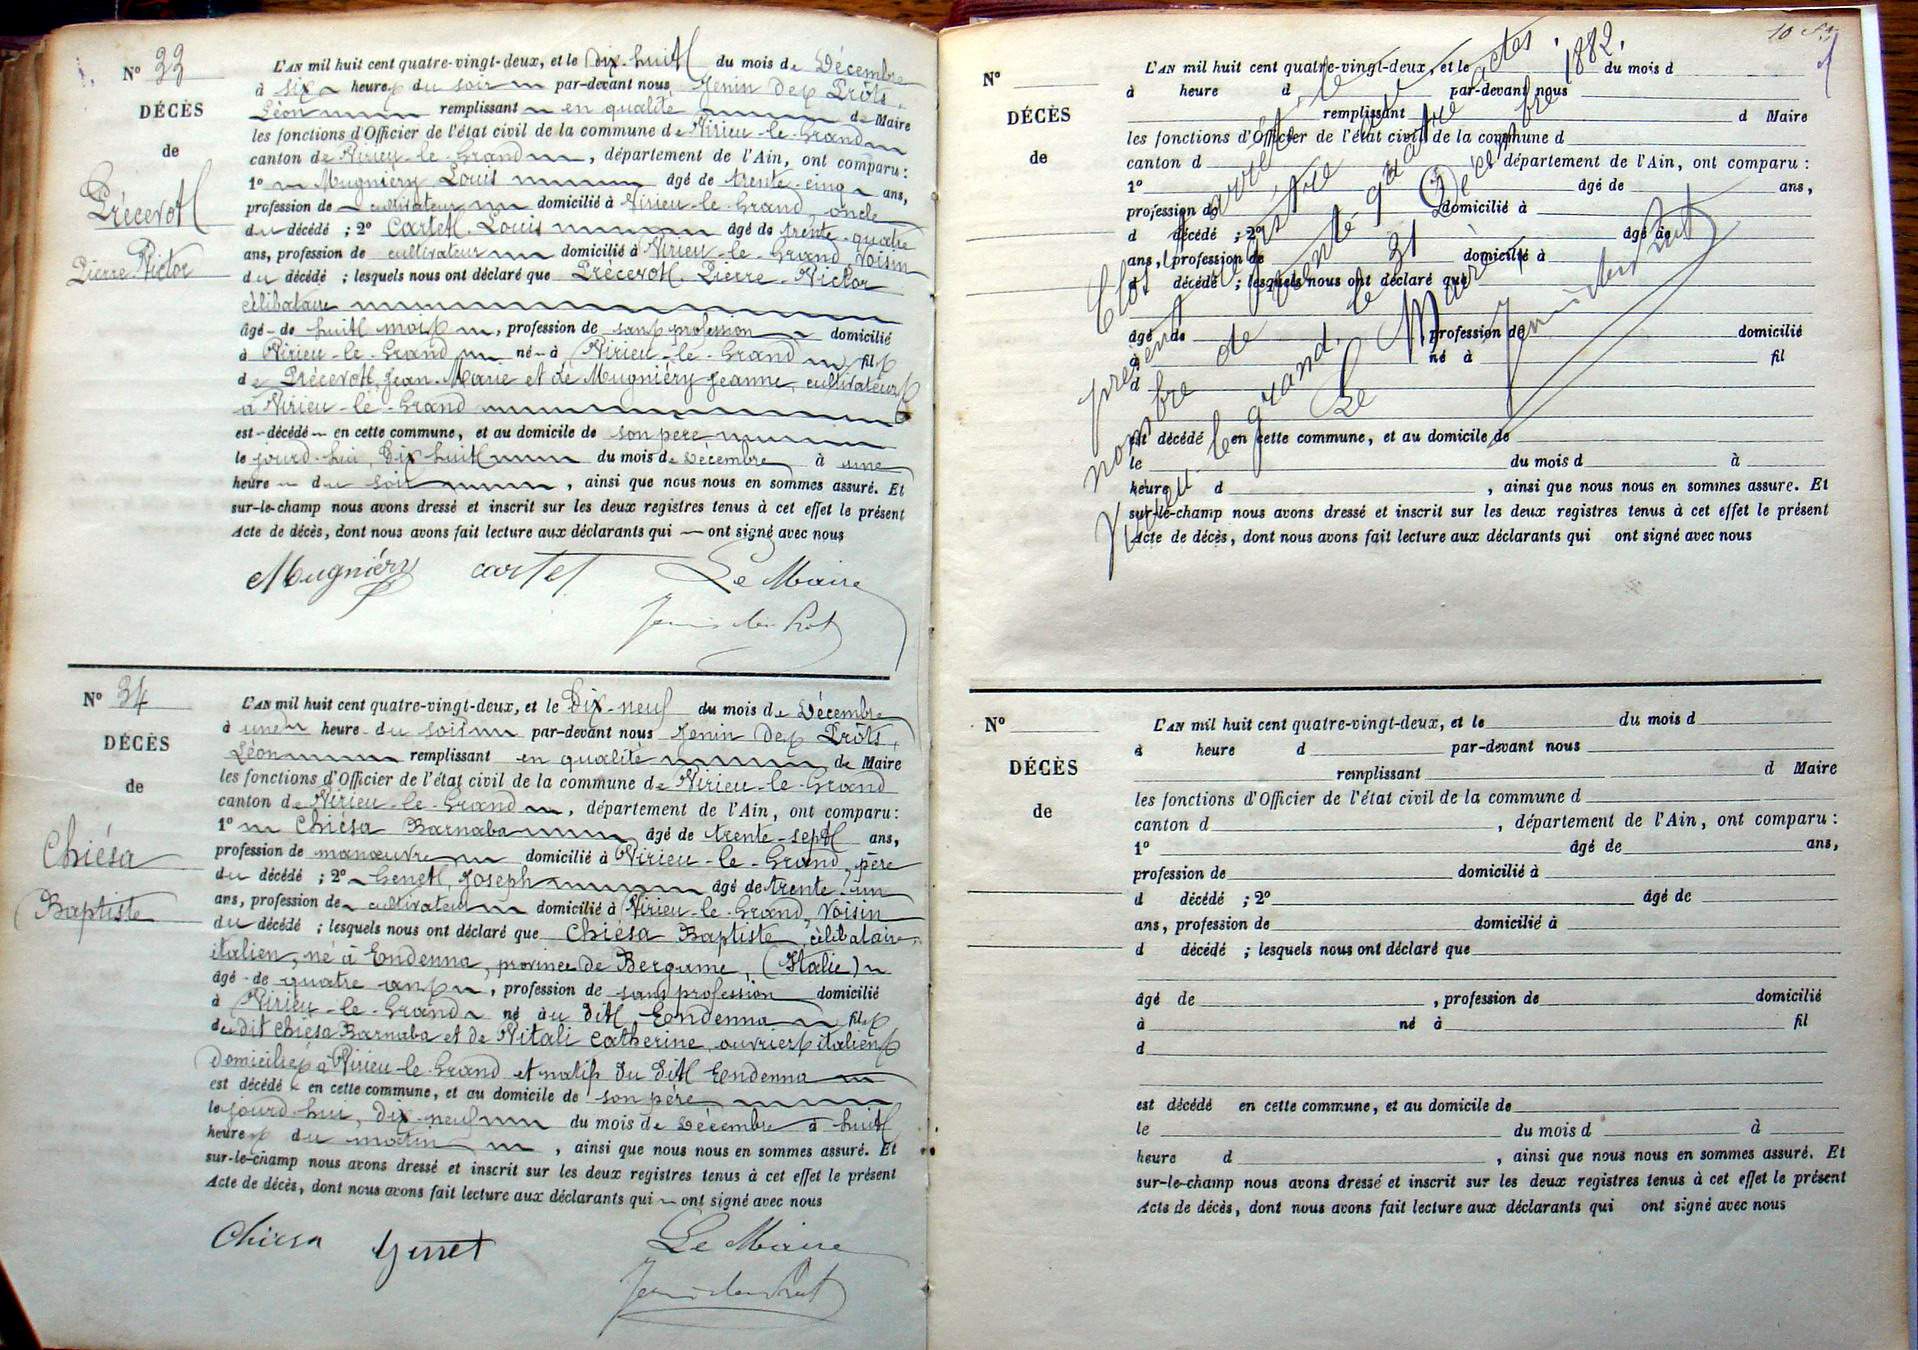 N° 33
DÉCÈS
de
Précevott
Pierre Victor
L'AN mil huit cent quatre-vingt-deux, et le Dix-huitt du mois de Décembre
à six heures du soir par-devant nous Jenin Des Prôts,
Léon remplissant en qualité de Maire
les fonctions d'Officier de l'état civil de la commune de Virieu-le-Grand
canton de Virieu-le-Grand, département de l'Ain, ont comparu :
1° Mugniéry Louis âgé de trente-cinq ans,
profession de cultivateur domicilié à Virieu-le-Grand, oncle
du décédé ; 2° Cartett Louis âgé de trente-quatre
ans, profession de cultivateur domicilié à Virieu-le-Grand, voisin
du décédé ; lesquels nous ont déclaré que Précevott Pierre-Victor
célibataire
âgé de huitt mois, profession de sans profession domicilié
à Virieu-le-Grand né à Virieu-le-Grand fils
de Précevott, Jean-Marie et de Mugniéry Jeanne, cultivateurs
à Virieu-le-Grand
est décédé en cette commune, et au domicile de son père
le jourd'hui, Dix huitt du mois de Décembre à une
heure du soir, ainsi que nous nous en sommes assuré. Et
sur-le-champ nous avons dressé et inscrit sur les deux registres tenus à cet effet le présent
Acte de décès, dont nous avons fait lecture aux déclarants qui ont signé avec nous
Mugniéry cartet Le Maire
Jenin des Prôt
N° 34
DÉCÈS
de
Chiésa
Baptiste
L'AN mil huit cent quatre-vingt-deux, et le Dix-neuf du mois de Décembre
à une heure du soir par-devant nous Jenin Des Prôts,
Léon remplissant en qualité de Maire
les fonctions d'Officier de l'état civil de la commune de Virieu-le-Grand
canton de Virieu-le-Grand, département de l'Ain, ont comparu :
1° Chiésa Barnaba âgé de trente-septt ans,
profession de manœuvre domicilié à Virieu-le-Grand, père
du décédé ; 2° Genett, Joseph âgé de trente-un
ans, profession de cultivateur domicilié à Virieu-le-Grand, voisin
du décédé ; lesquels nous ont déclaré que Chiésa Baptiste, célibataire
italien, né à Endenna, province de Bergame, (Italie)
âgé de quatre ans, profession de sans profession domicilié
à Virieu-le-Grand né au ditt Endenna fils
du dit Chiésa Barnaba et de Vitali Catherine, ouvriers italiens
domiciliés à Virieu-le-Grand et natifs du ditt Endenna
est décédé en cette commune, et au domicile de son père
le jourd'hui, dix-neuf du mois de Décembre à huitt
heures du matin, ainsi que nous nous en sommes assuré. Et
sur-le-champ nous avons dressé et inscrit sur les deux registres tenus à cet effet le présent
Acte de décès, dont nous avons fait lecture aux déclarants qui ont signé avec nous
Chiesa Genet Le Maire
Jenin des Prôt
N°
DÉCÈS
de
L'AN mil huit cent quatre-vingt-deux, et le du mois d
à heure d par-devant nous
remplissant d Maire
les fonctions d'Officier de l'état civil de la commune d
canton d département de l'Ain, ont comparu :
1° âgé de ans,
profession de domicilié à
d décédé ; 2° âgé de
ans, profession de domicilié à
d décédé ; lesquels nous ont déclaré que
âgé de profession de domicilié
à né à fil
d
est décédé en cette commune, et au domicile de
le du mois d à
heure d , ainsi que nous nous en sommes assuré. Et
sur-le-champ nous avons dressé et inscrit sur les deux registres tenus à cet effet le présent
Acte de décès, dont nous avons fait lecture aux déclarants qui ont signé avec nous
Clos et arrêté le
présent registre
nombre de trente quatre actes.
Virieu-le-grand, le 31 Décembre 1882.
Le Maire
Jenin des Prôt
N°
DÉCÈS
de
L'AN mil huit cent quatre-vingt-deux, et le du mois d
à heure d par-devant nous
remplissant d Maire
les fonctions d'Officier de l'état civil de la commune d
canton d , département de l'Ain, ont comparu :
1° âgé de ans,
profession de domicilié à
d décédé ; 2° âgé de
ans, profession de domicilié à
d décédé ; lesquels nous ont déclaré que
âgé de , profession de domicilié
à né à fil
d
est décédé en cette commune, et au domicile de
le du mois d à
heure d , ainsi que nous nous en sommes assuré. Et
sur-le-champ nous avons dressé et inscrit sur les deux registres tenus à cet effet le présent
Acte de décès, dont nous avons fait lecture aux déclarants qui ont signé avec nous